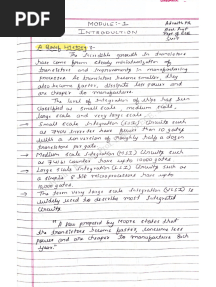 PDF
MODULE-1
INTRODUCTION
A Brief History:-
The incredible growth in transistors
has come from steady miniaturization of
transistors and improvement in manufacturing
processes. As transistors become smaller, they
also become faster, dissipate less power and
are cheaper to manufacture.
The level of integration of chips has been
classified as small scale, medium scale,
large scale and very large scale.
Small scale Integration (SSI) circuits such
as 7404 inverter have fewer than 10 gates
with a conversion of roughly half a dozen
transistors per gate.
→ Medium scale Integration (MSI) circuits such
as 74161 counter have upto 1000 gates
→ Large scale Integration (LSI) circuits such
as simple 8 bit microprocessors have upto
10,000 gates
→ The term very large scale Integration (VLSI) is
widely used to describe most integrated
circuits
by Moore states that
the transistors become faster, consume less
power and are cheaper to manufacture each
year"